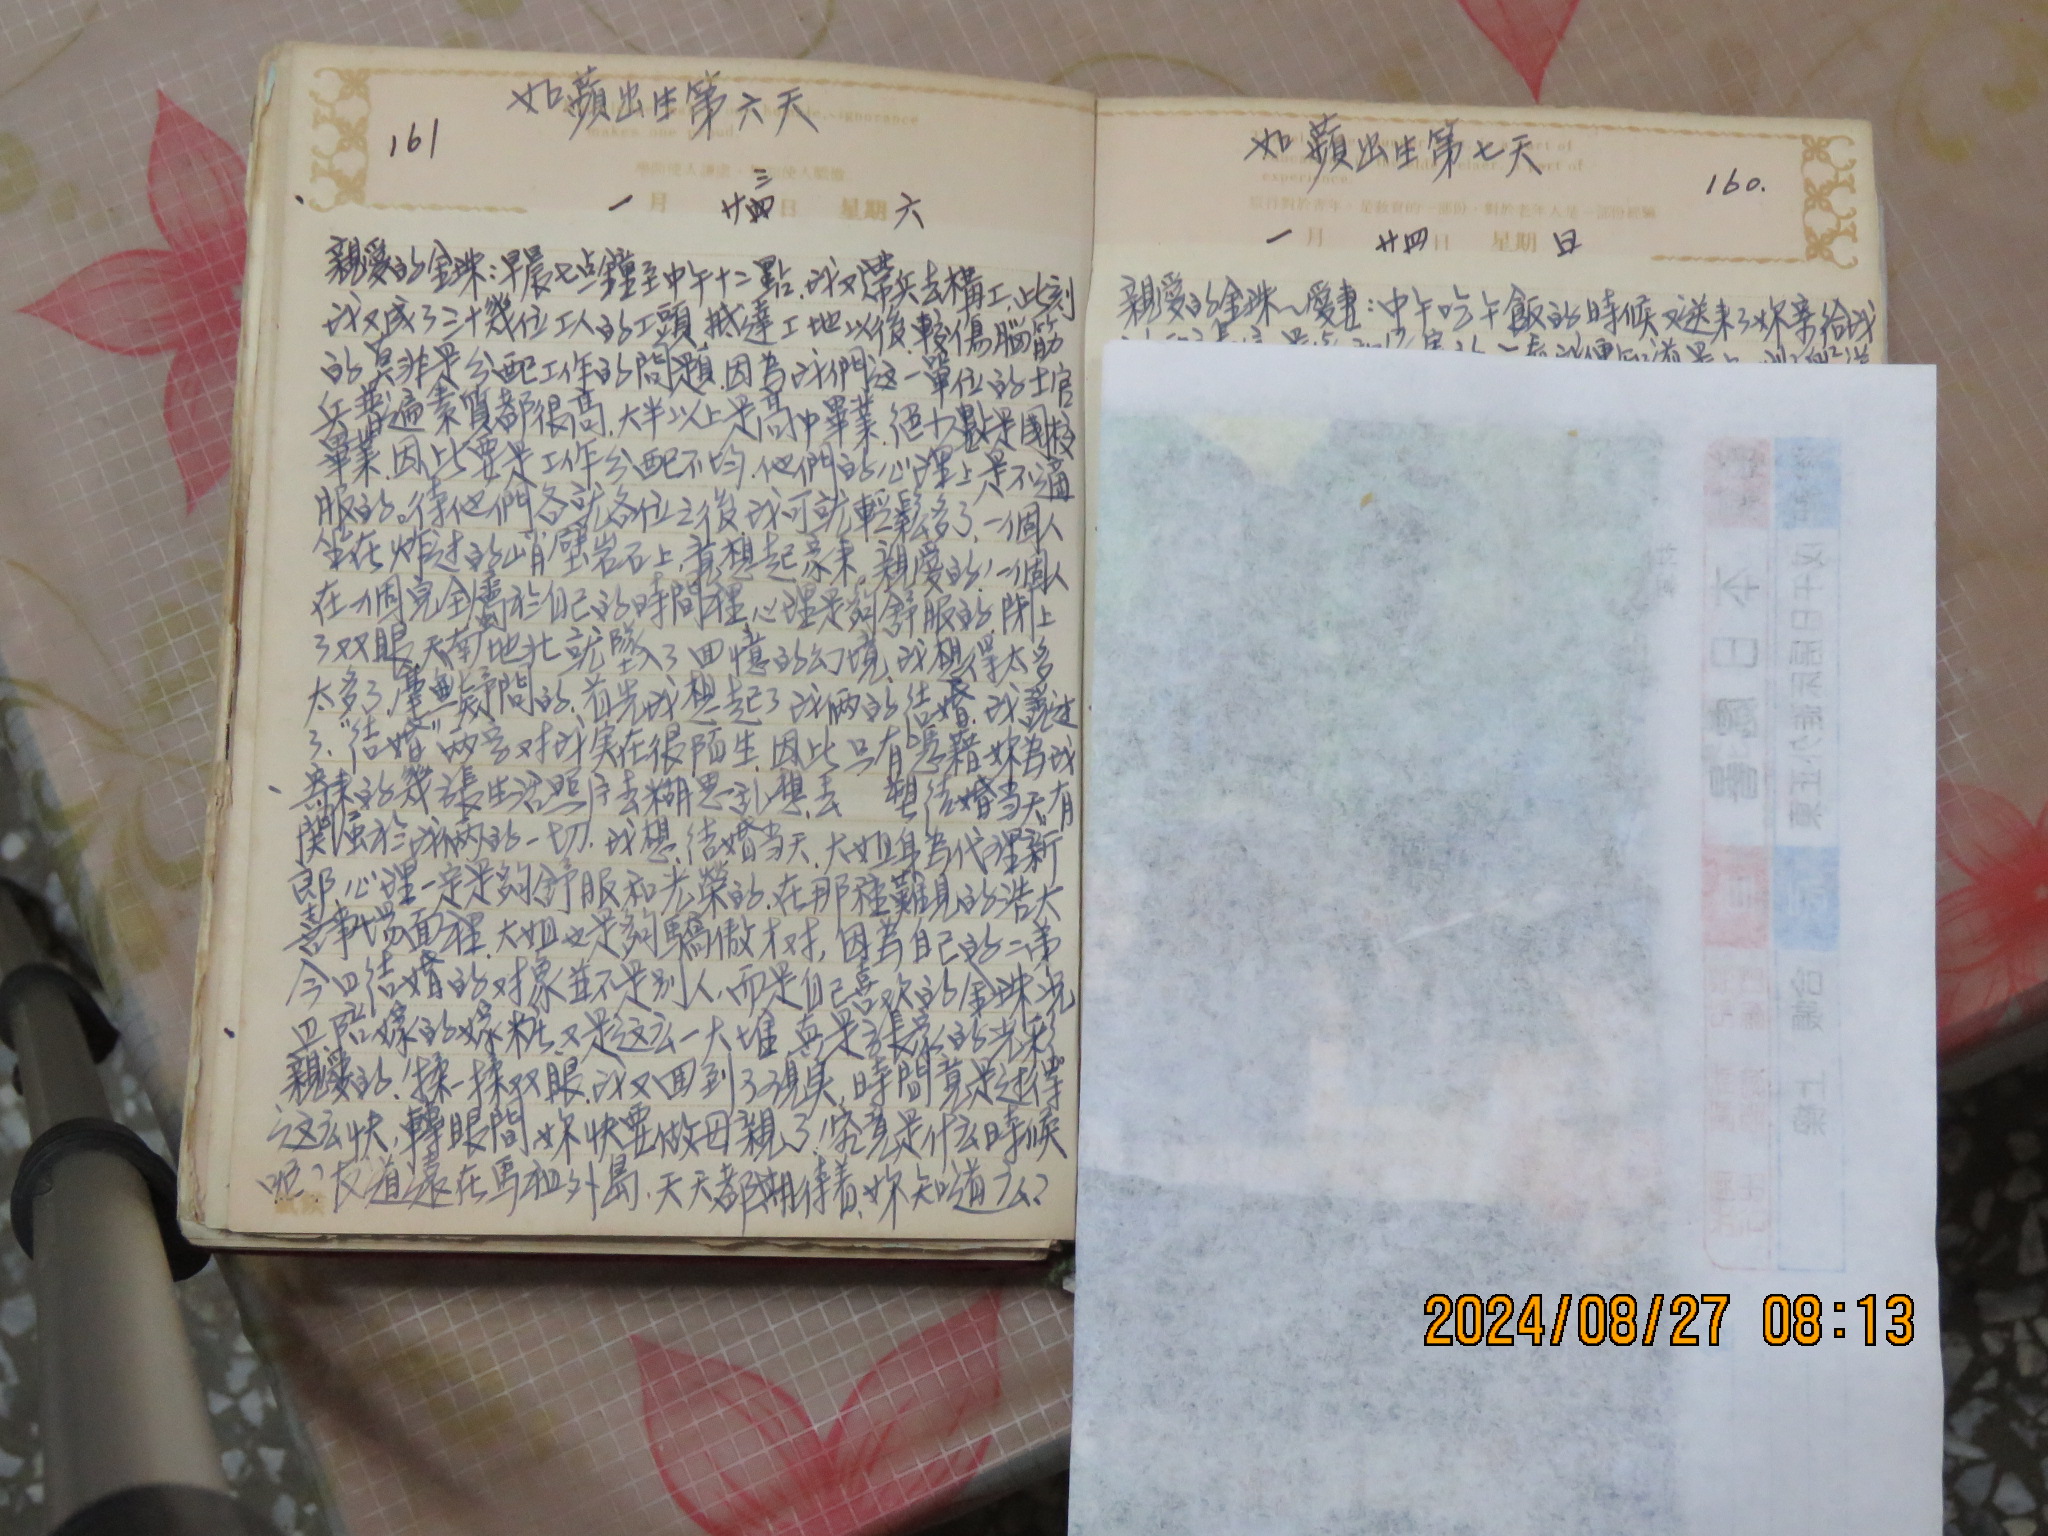 如蘋出生第六天
161
一月 廿三日 星期六
親愛的金珠:早晨七点鐘至中午十二點,我又帶兵去構工,此刻
我又成了三十幾位工人的工頭,抵達工地以後,較傷腦筋
的莫非是分配工作的問題,因為我們這一單位的士官
兵普遍素質都很高,大半以上是高中畢業,絕少數是國校
畢業,因此要是工作分配不均,他們的心理上是不適
服的。待他們各就各位之後,我可就輕鬆多了,一個人
坐在炸过的峭壁岩石上,衷想起來,親愛的!一個人
在一個完全屬於自己的時間裡,心理是夠舒服的,閉上
了双眼,天南地北就墜入了回憶的幻境,我想得太多
太多了,毫無疑問的,首先我想起了我俩的结婚,我說过
了,"结婚"两字对我实在很陌生,因此只有憑藉妳為我
寄來的幾張生活照片去糊思乱想去 想结婚当天有
関僅於我俩的一切,我想,结婚当天,大姐身為代理新
郎,心理一定是夠舒服和光榮的,在那種難見的浩大
喜事場面裡,大姐也是夠驕傲才对,因為自己的二弟
今日结婚的对象並不是别人,而是自己喜欢的金珠,况
且陪嫁的嫁粧又是这么一大堆,真是張家的光彩
親愛的!揉一揉双眼,我又回到了现实,時間竟是过得
这么快,轉眼間,妳快要做母親了!究竟是什么時候
呢?友道遠在馬祖外島,天天都期待着,妳知道么?
如蘋出生第七天
160.
一月 廿四日 星期日
親愛的金珠~愛妻:中午吃午飯的時候又送來了妳寄给我
2024/08/27 08:13